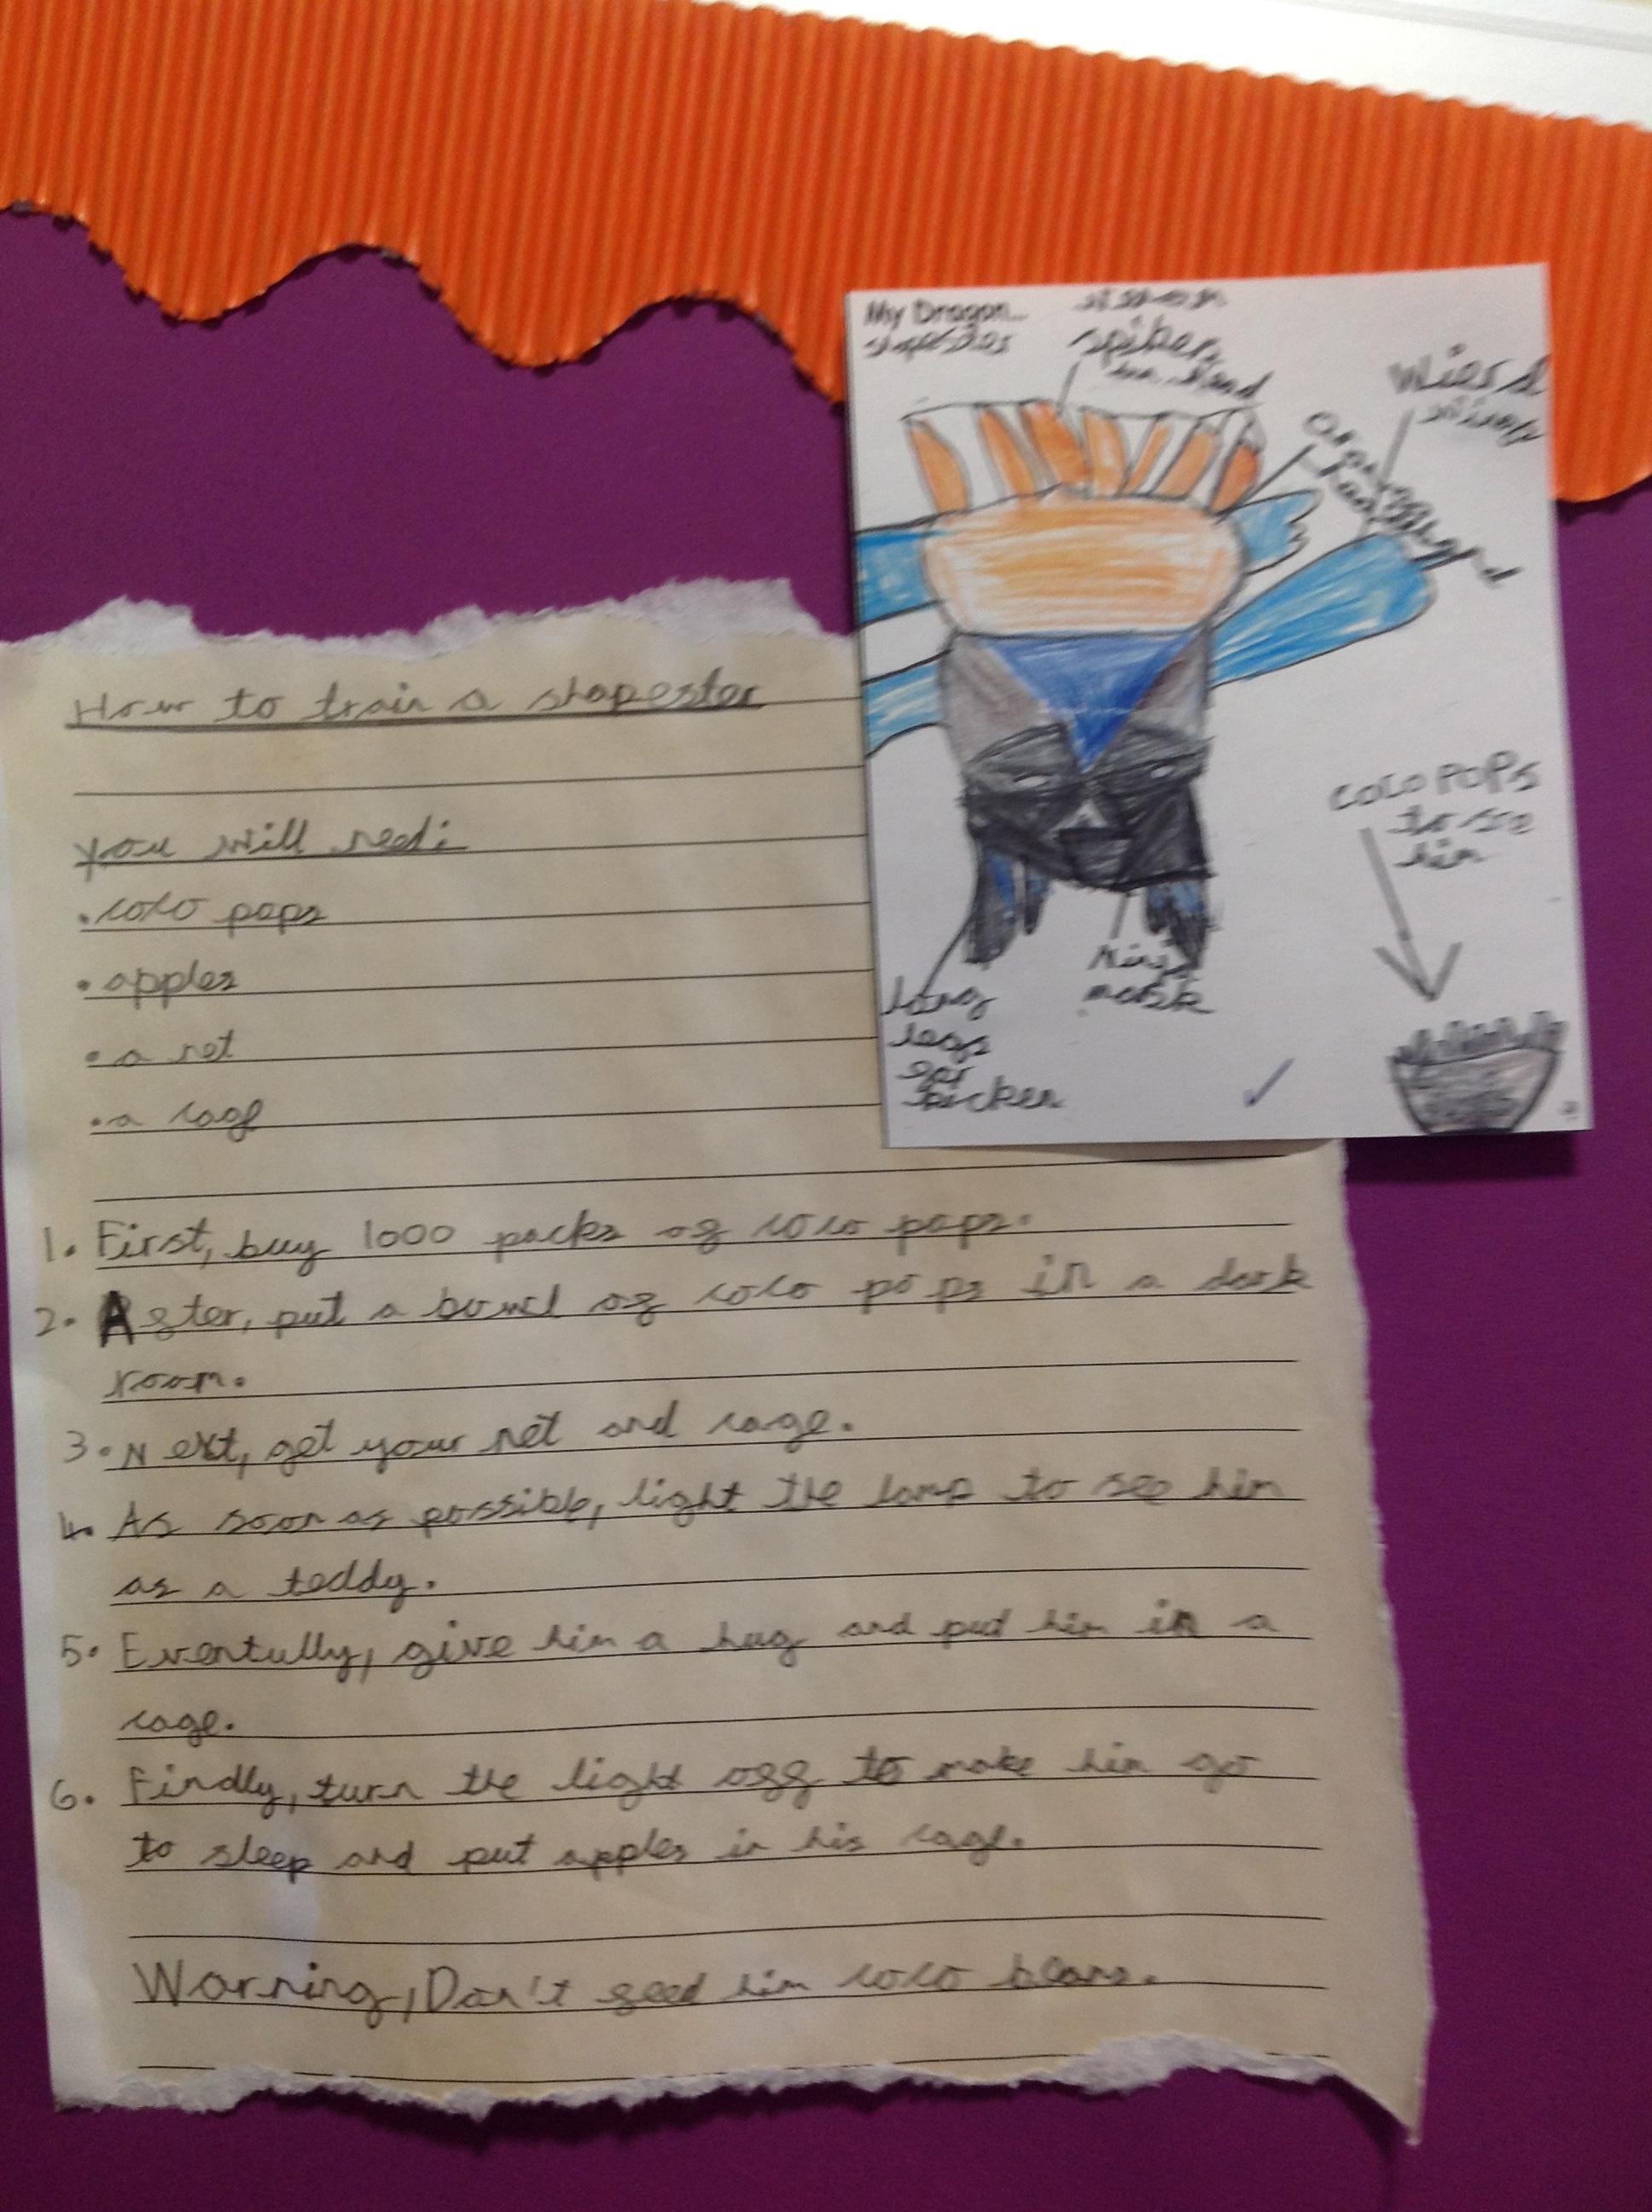 My Dragon...
spikes
Wierd
COCO POPS
to see
him
Ninja
mask
long
legs
How to train a shapester
You will need:
• coco pops
• apples
• a net
• a cage
1. First, buy 1000 packs of coco pops.
2. After, put a bowl of coco pops in a dark
room.
3. Next, get your net and cage.
4. As soon as possible, light the lamp to see him
as a teddy.
5. Eventully, give him a hug and put him in a
cage.
6. Findly, turn the light off to make him go
to sleep and put apples in his cage.
Warning, Don't feed him coco beans.